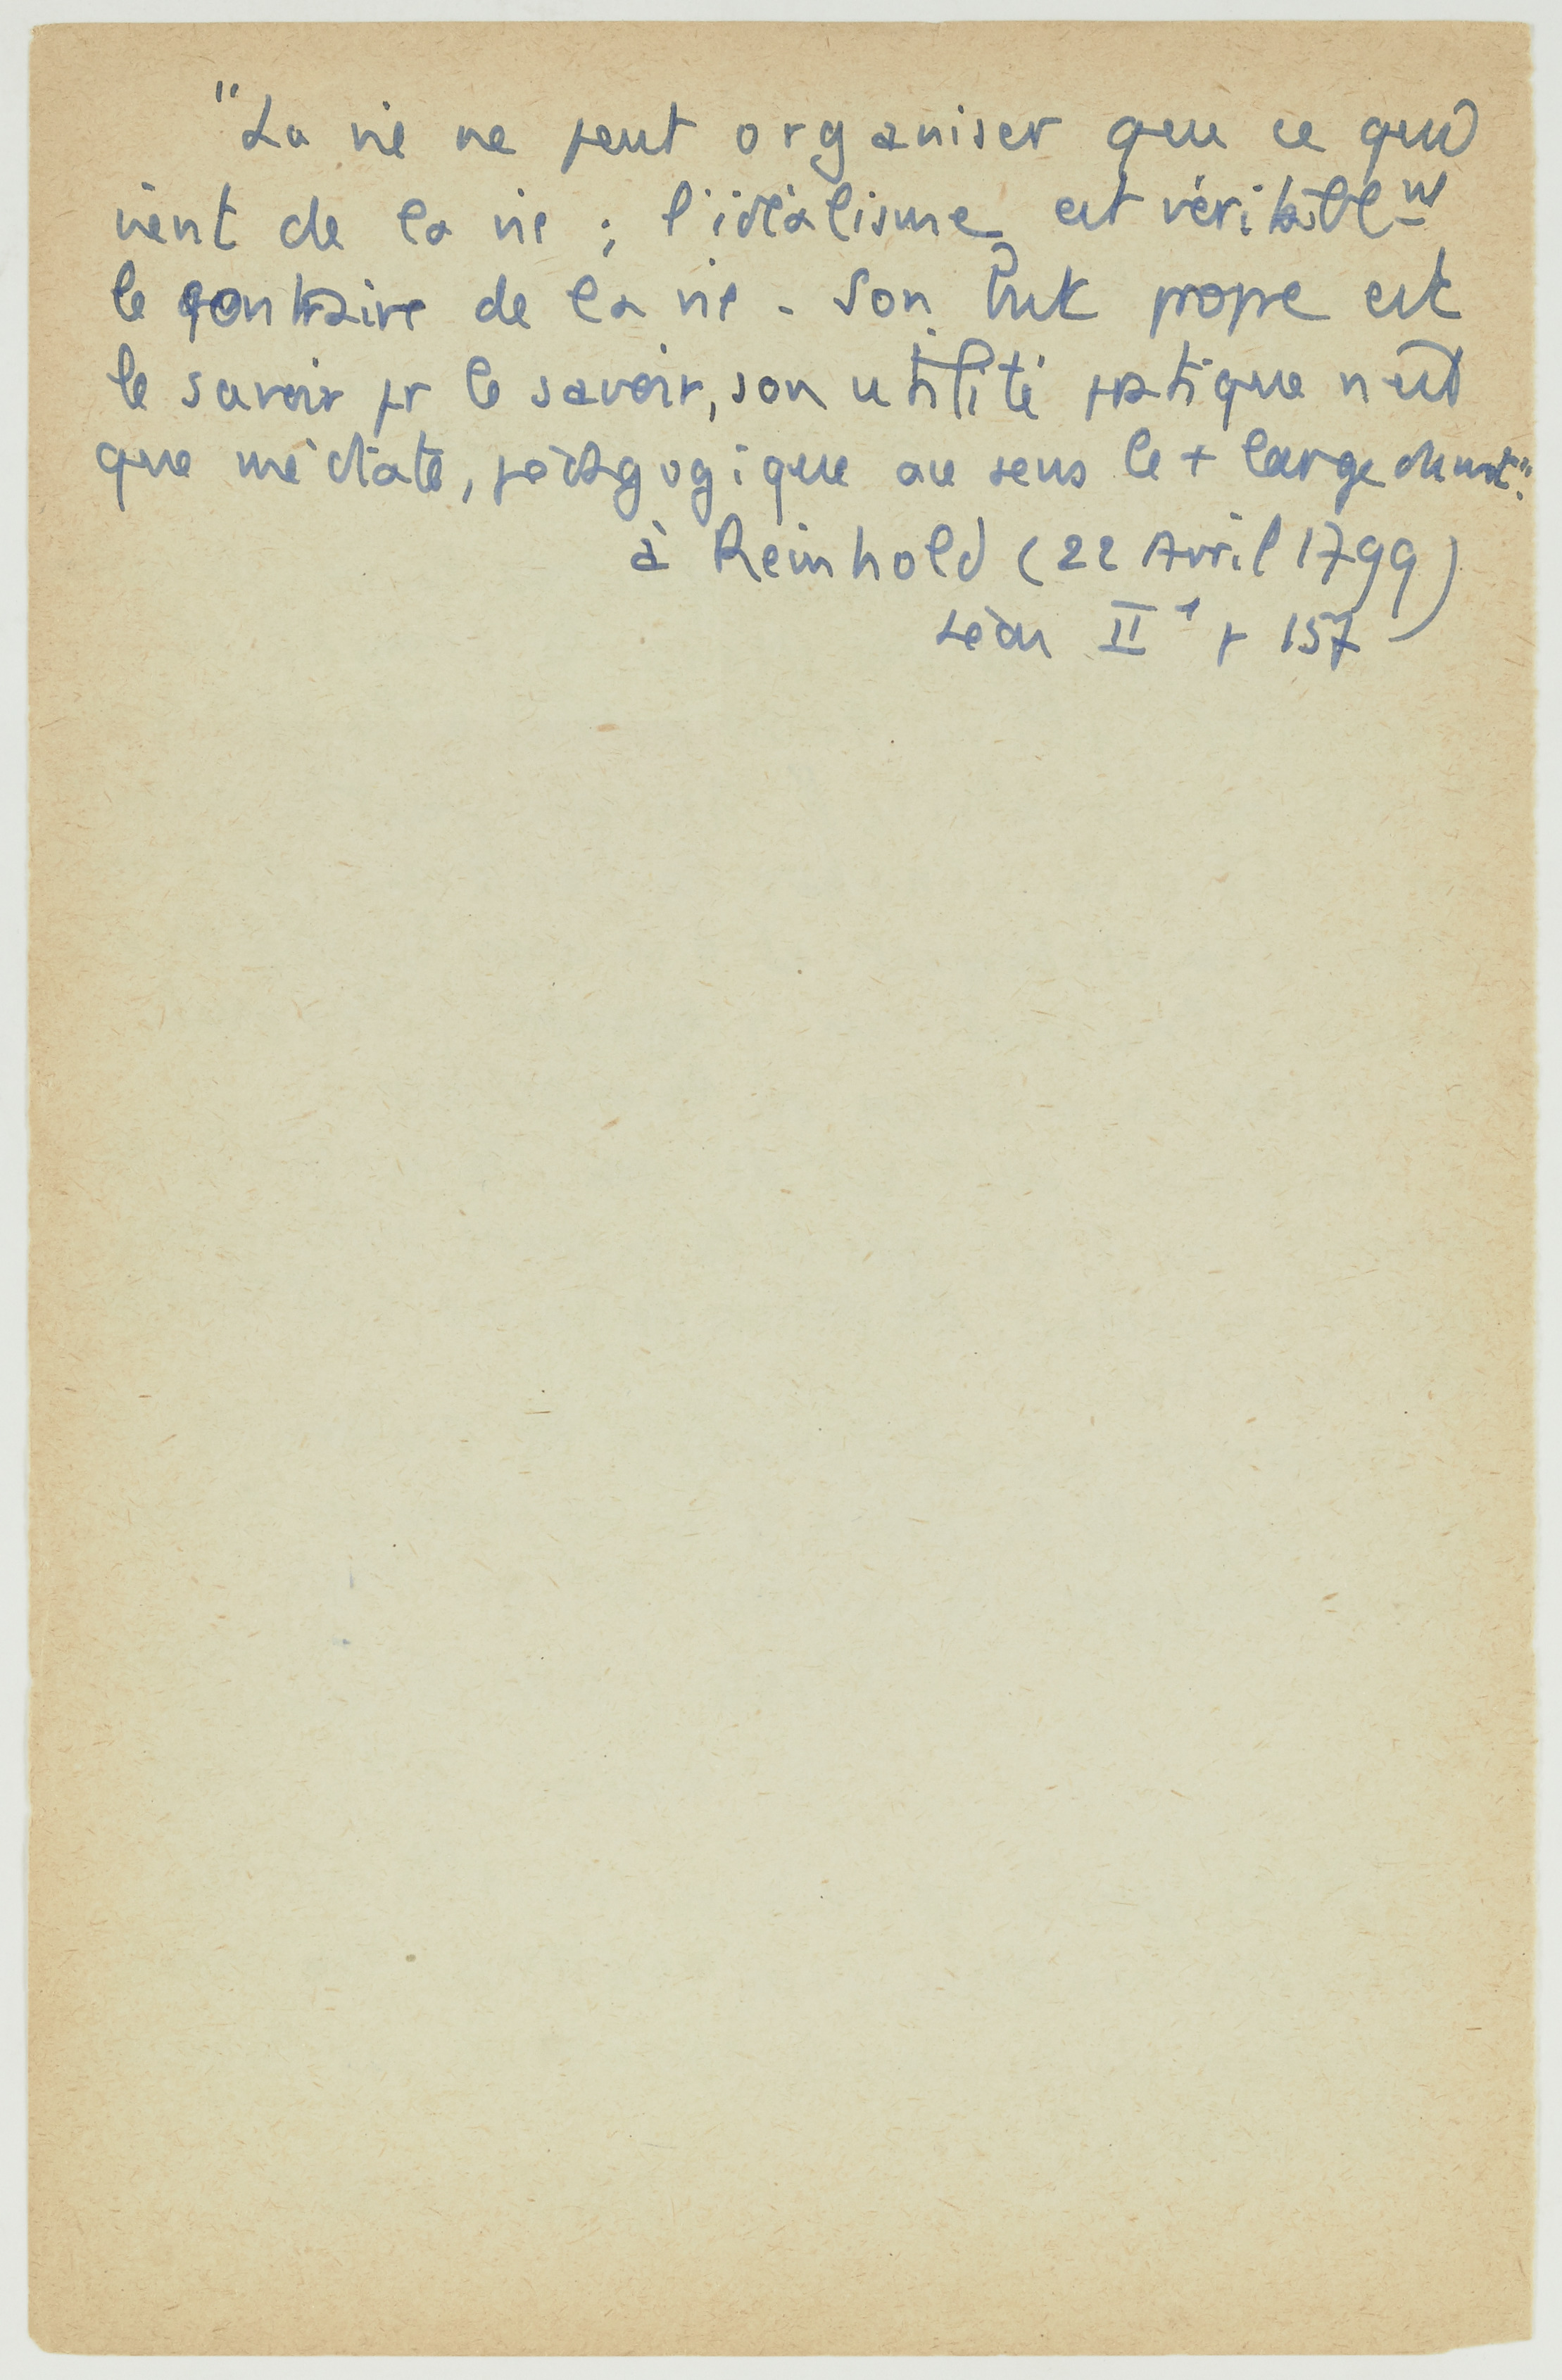 "La vie ne peut organiser que ce qui
vient de la vie ; l'idéalisme est véritablnt
le contraire de la vie. Son but propre est
le savoir pr le savoir, son utilité pratique n'est
que médiate, pédagogique au sens le + large du mot".
à Reinhold (22 Avril 1799)
Léon II 1 p 157